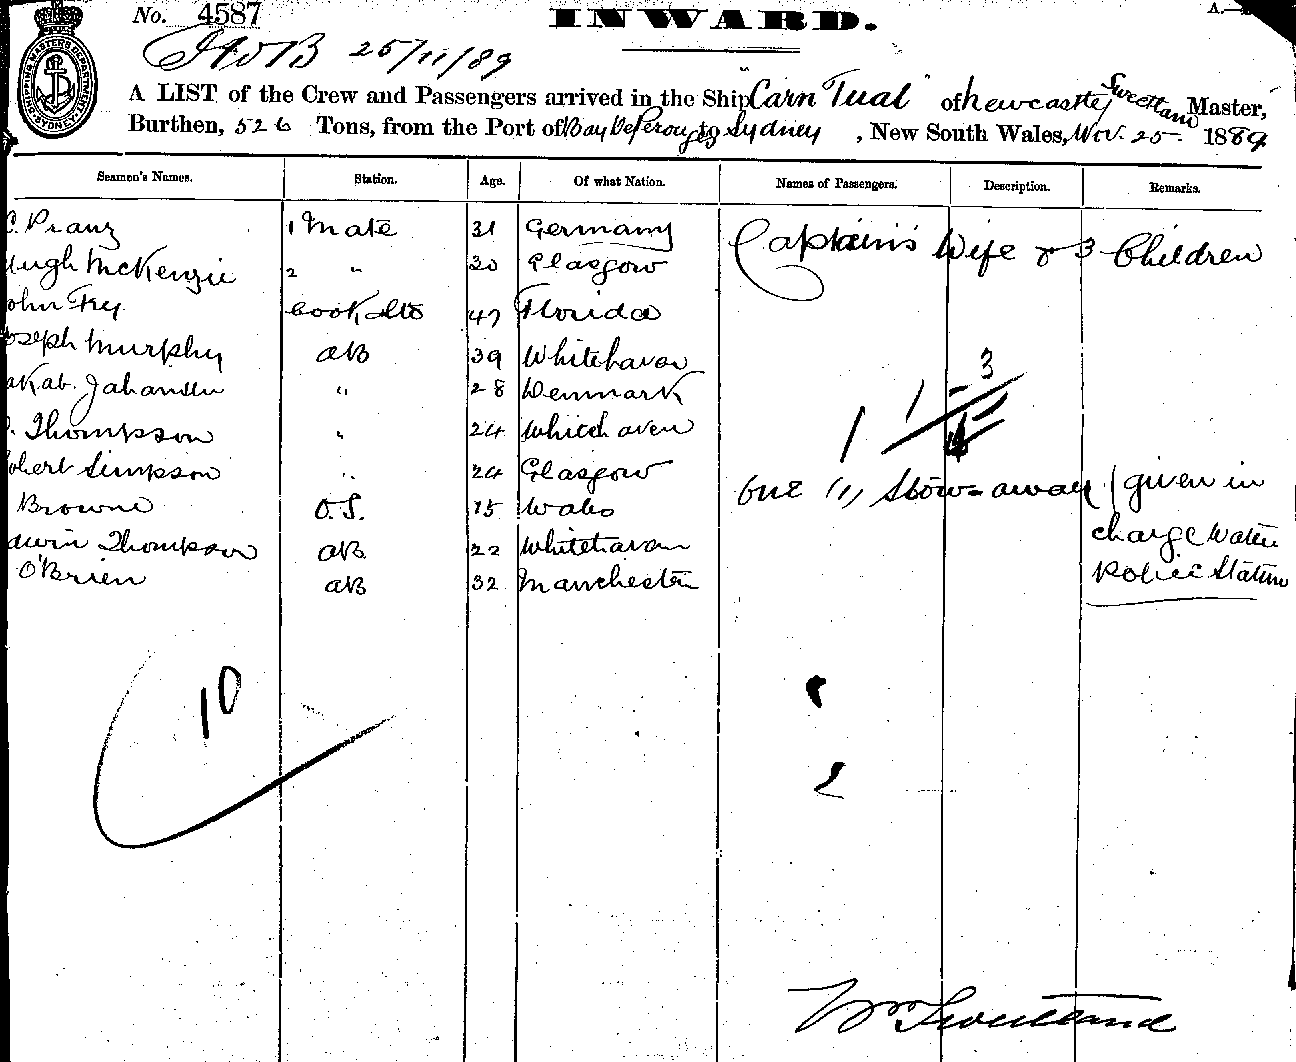 No. 4587
INWARD.
A.—
SHIPPING MASTER'S DEPARTMENT SYDNEY
25/11/89
A LIST of the Crew and Passengers arrived in the Ship "Carn Tual" of Newcastle, Sweetland Master,
Burthen, 526 Tons, from the Port of Bay De to Sydney, New South Wales, Nov. 25 1889
Seamen's Names. Station. Age. Of what Nation. Names of Passengers. Description. Remarks.
C. Pranz 1 Mate 31 Germany Captain's Wife & 3 Children
ugh McKenzie 2 " 30 Glasgow
ohn Fry Cook & Std 47 Florida
oseph Murphy AB 39 Whitehaven
akab. Johansen " 28 Denmark 3
. Thompson " 24 Whitehaven 1 1 4
obert Simpson " 24 Glasgow one (1) Stow-away (given in
Browne O.S. 15 Wales charge Water
dwin Thompson AB 22 Whitehaven Police Station
O'Brien AB 32 Manchester
10
Wm Sweetland